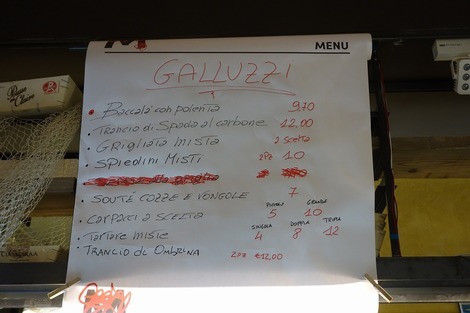 MENU
GALLUZZI
Baccalà con polenta 9,70
Trancio di Spada al carbone 12,00
Grigliata mista a scelta
Spiedini Misti 2Pz 10
Soutè cozze e vongole 7
Piccolo Grande
Carpacci a scelta 5 10
Singola Doppia Tripla
Tartare miste 4 8 12
Trancio di Ombrina 2Pz €12,00